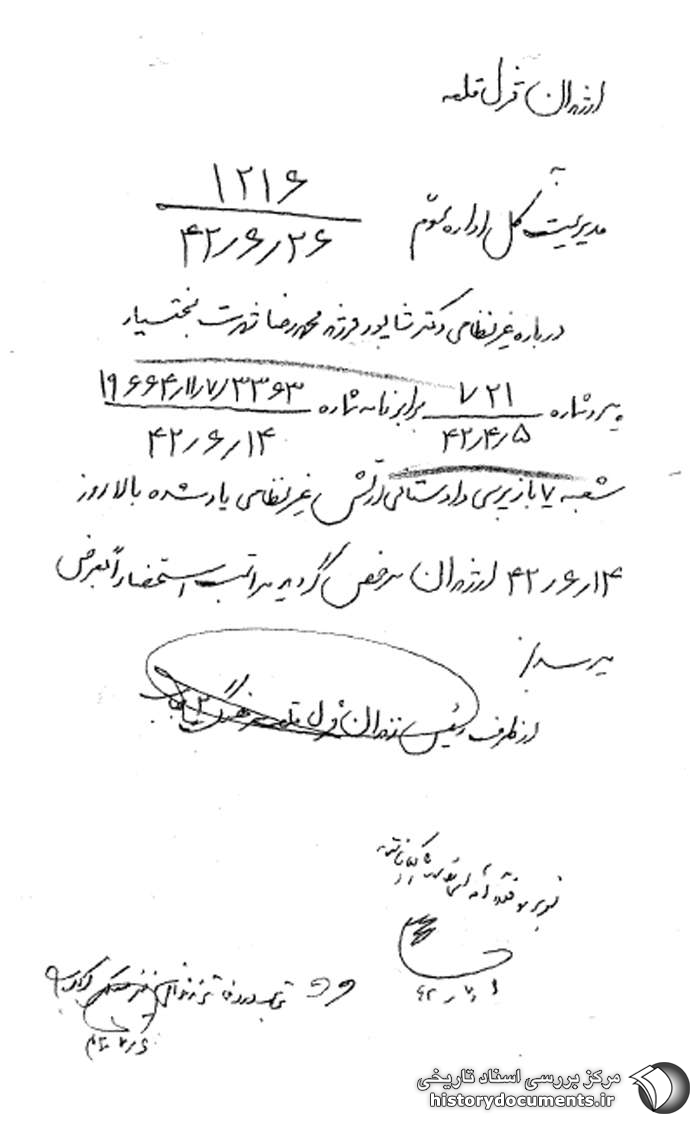 از زندان قزل قلعه
به
مدیریت کل اداره سوم
۱۲۱۶
۴۲/۶/۲۶
درباره غیرنظامی دکتر شاپور فرزند محمدرضا شهرت بختیار
پیرو شماره ۷۲۱ برابر نامه شماره ۱۹۶۶۴/۱۱/۷/۳۳۶۳
۴۲/۴/۵ ۴۲/۶/۱۴
شعبه ۷ بازپرسی دادستانی ارتش غیرنظامی یاد شده بالا روز
۴۲/۶/۱۴ از زندان مرخص گردید مراتب استحضاراً بعرض
میرسد/
از طرف رئیس زندان قزل قلعه
مرکز بررسی اسناد تاریخی
historydocuments.ir